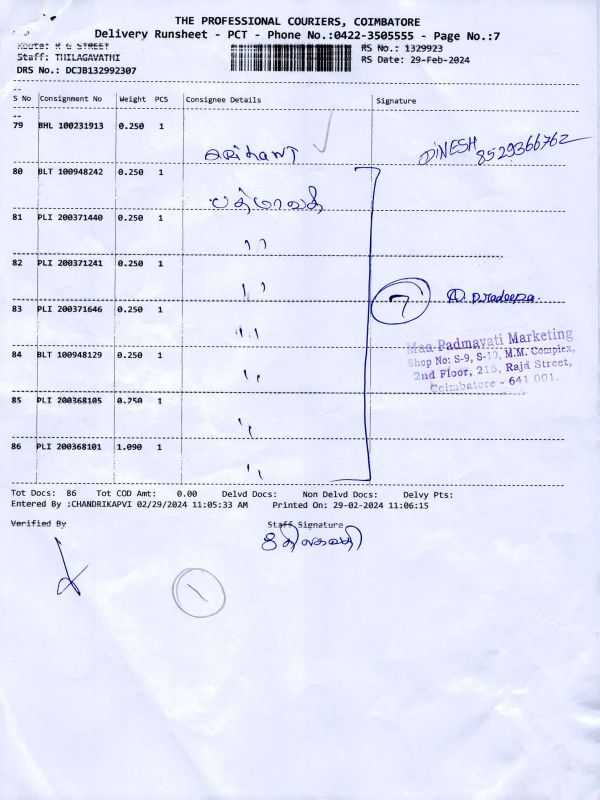 THE PROFESSIONAL COURIERS, COIMBATORE
Delivery Runsheet - PCT - Phone No.:0422-3505555 - Page No.:7
Route: R G STREET
RS No.: 1329923
Staff: THILAGAVATHI
RS Date: 29-Feb-2024
DRS No.: DCJB132992307
S No Consignment No Weight PCS Consignee Details Signature
79 BHL 100231913 0.250 1
DINESH 8529366762
80 BLT 100948242 0.250 1
81 PLI 200371440 0.250 1
82 PLI 200371241 0.250 1
7 D. pradeepa.
83 PLI 200371646 0.250 1
Maa Padmavati Marketing
Shop No: S-9, S-10, M.M. Complex,
2nd Floor, 215, Raja Street,
Coimbatore - 641 001.
84 BLT 100948129 0.250 1
85 PLI 200368105 0.250 1
86 PLI 200368101 1.090 1
Tot Docs: 86 Tot COD Amt: 0.00 Delvd Docs: Non Delvd Docs: Delvy Pts:
Entered By :CHANDRIKAPVI 02/29/2024 11:05:33 AM Printed On: 29-02-2024 11:06:15
Verified By Staff Signature
1